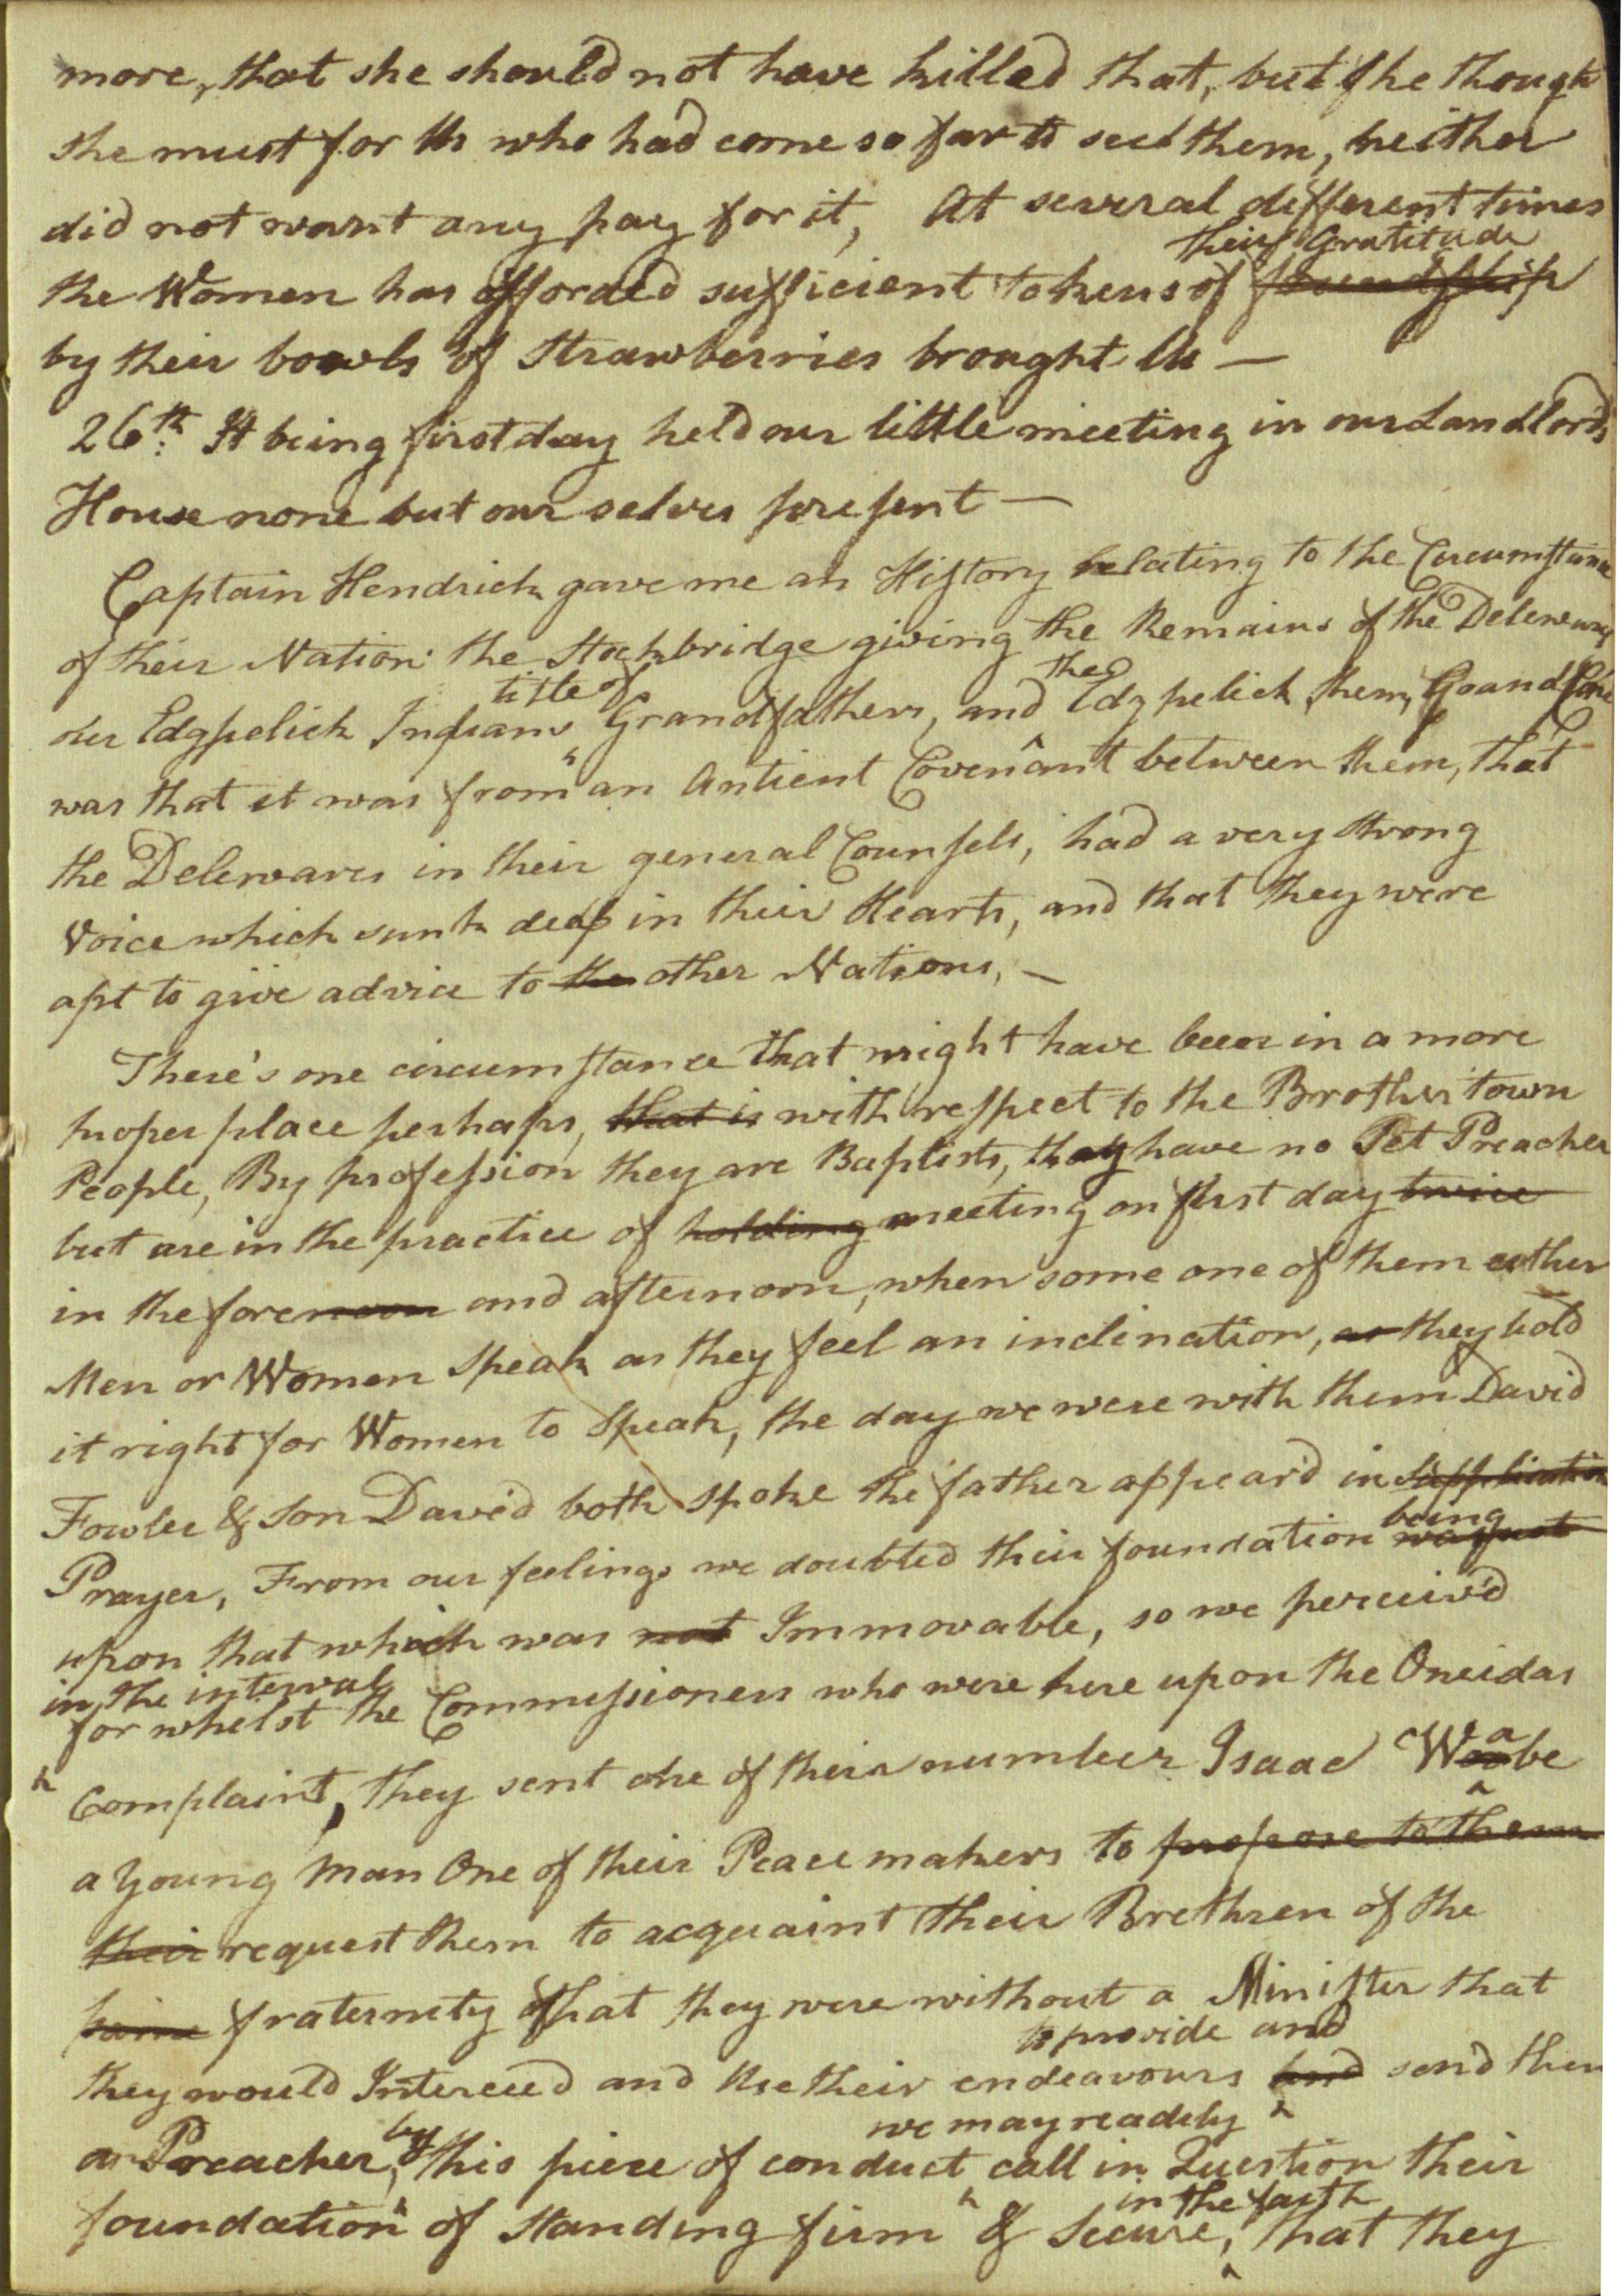 more, that she should not have killed that, but she though
she must for Us who had come so far to see them, neither
did not want any pay for it, At several different times
their Gratitude
the Women has afforded sufficient tokens of friendship
by their bowls of Strawberries brought Us —
26th. It being first day held our little meeting in our Landlords
House none but our selves present —
Captain Hendrick gave me an History relating to the Circumstance
of their Nation the Stockbridge giving the Remains of the Delewares
title of the
or Edgpelick Indians Grandfathers, and Edgpelick them,
was that it was from an Antient Covenant between them, that
the Delewares in their general Counsels, had a very strong
Voice which sunk deap in their Hearts, and that they were
apt to give advice to the other Nations, —
There's one circumstance that might have been in a more
proper place perhaps, that is with respect to the Brothertown
People, By profession they are Baptists, they have no Set Preacher
but are in the practice of holding meeting on first day twice
in the forenoon and afternoon, when some one of them either
Men or Women Speak as they feel an inclination, as they hold
it right for Women to Speak, the day we were with them David
Fowler & Son David both spoke the father appear'd in Supplication
being
Prayer, From our feelings we doubted their foundation was just
upon that which was not Immovable, so we perceiv'd
in the interval
for whilst the Commissioners who were here upon the Oneidas
Complaint, they sent one of their number Isaac Waube
a Young Man One of their Peacemakers to propose to them
their request them to acquaint their Brethren of the
same fraternity that they were without a Minister that
to provide and
they would Interceed and Use their endeavours and send them
we may readily
a Preacher, by this piece of conduct call in Question their
in the faith
foundation of standing firm & Secure, that they